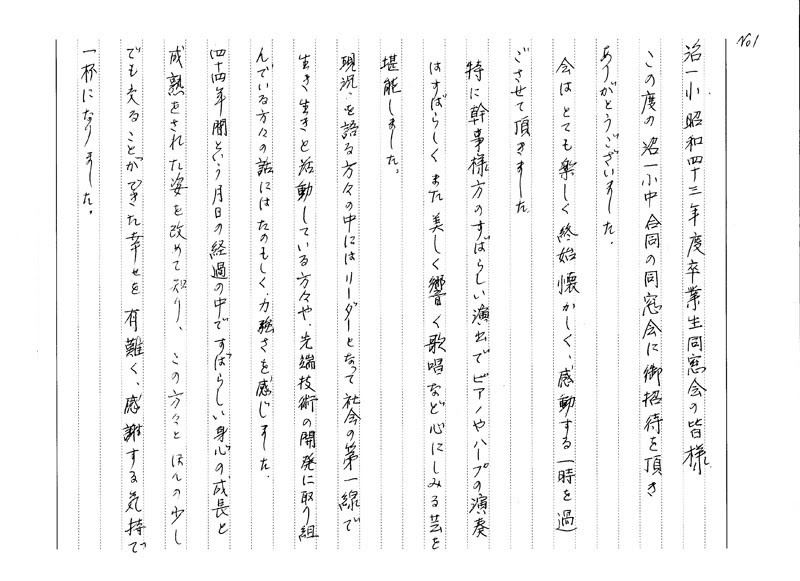 No1
沼一小 昭和四十三年度卒業生同窓会の皆様
この度の沼一小中合同の同窓会に御招待を頂き
ありがとうございました。
会は とても楽しく 終始懐かしく、感動する一時を過
ごさせて頂きました
特に幹事様方のすばらしい演出で ピアノやハープの演奏
はすばらしく また 美しく響く歌唱など心にしみる芸を
堪能しました。
現況を語る方々の中にはリーダーとなって社会の第一線で
生き生きと活動している方々や、先端技術の開発に取り組
んでいる方々の話にはたのもしく、力強さを感じました。
四十四年間という月日の経過の中ですばらしい身心の成長と
成熟をされた姿を改めて知り、この方々と ほんの少し
でも交ることができた幸せを 有難く、感謝する気持で
一杯になりました。